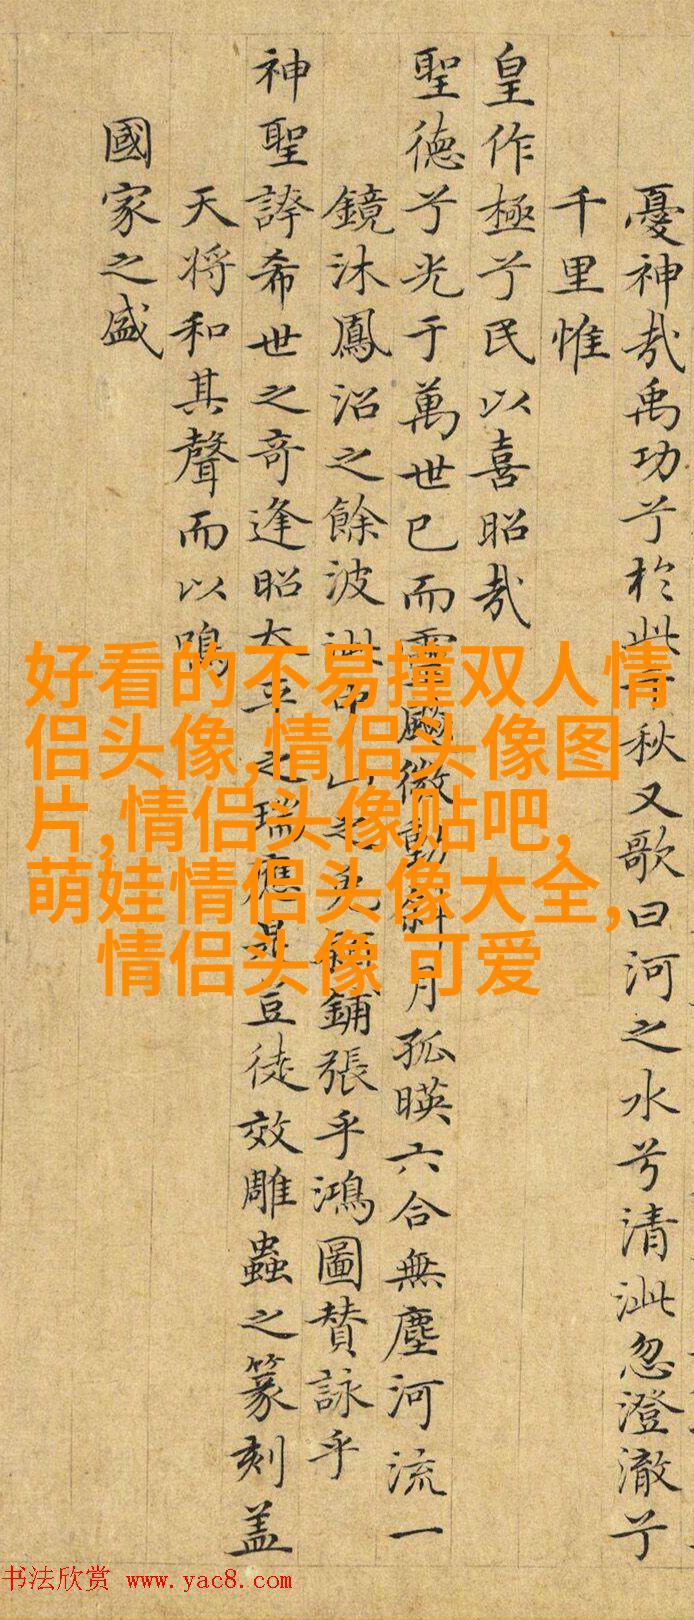 憂神哉禹功兮於此千秋又歌曰河之水兮清泚忽澄澈兮
千里惟
皇作極兮民以喜昭哉
聖德兮光于萬世已而靈飈微動斜月孤暎六合無塵河流一
鏡沐鳳沼之餘波泚中山之兔穎鋪張乎鴻圖賛詠乎
神聖誇希世之奇逢昭太平之瑞應是豈徒效雕蟲之篆刻盖
天将和其聲而以鳴
國家之盛
好看的不易撞双人情
侣头像,情侣头像图
片,情侣头像贴吧,
萌娃情侣头像大全,
情侣头像 可爱
书法欣赏 www.yac8.com